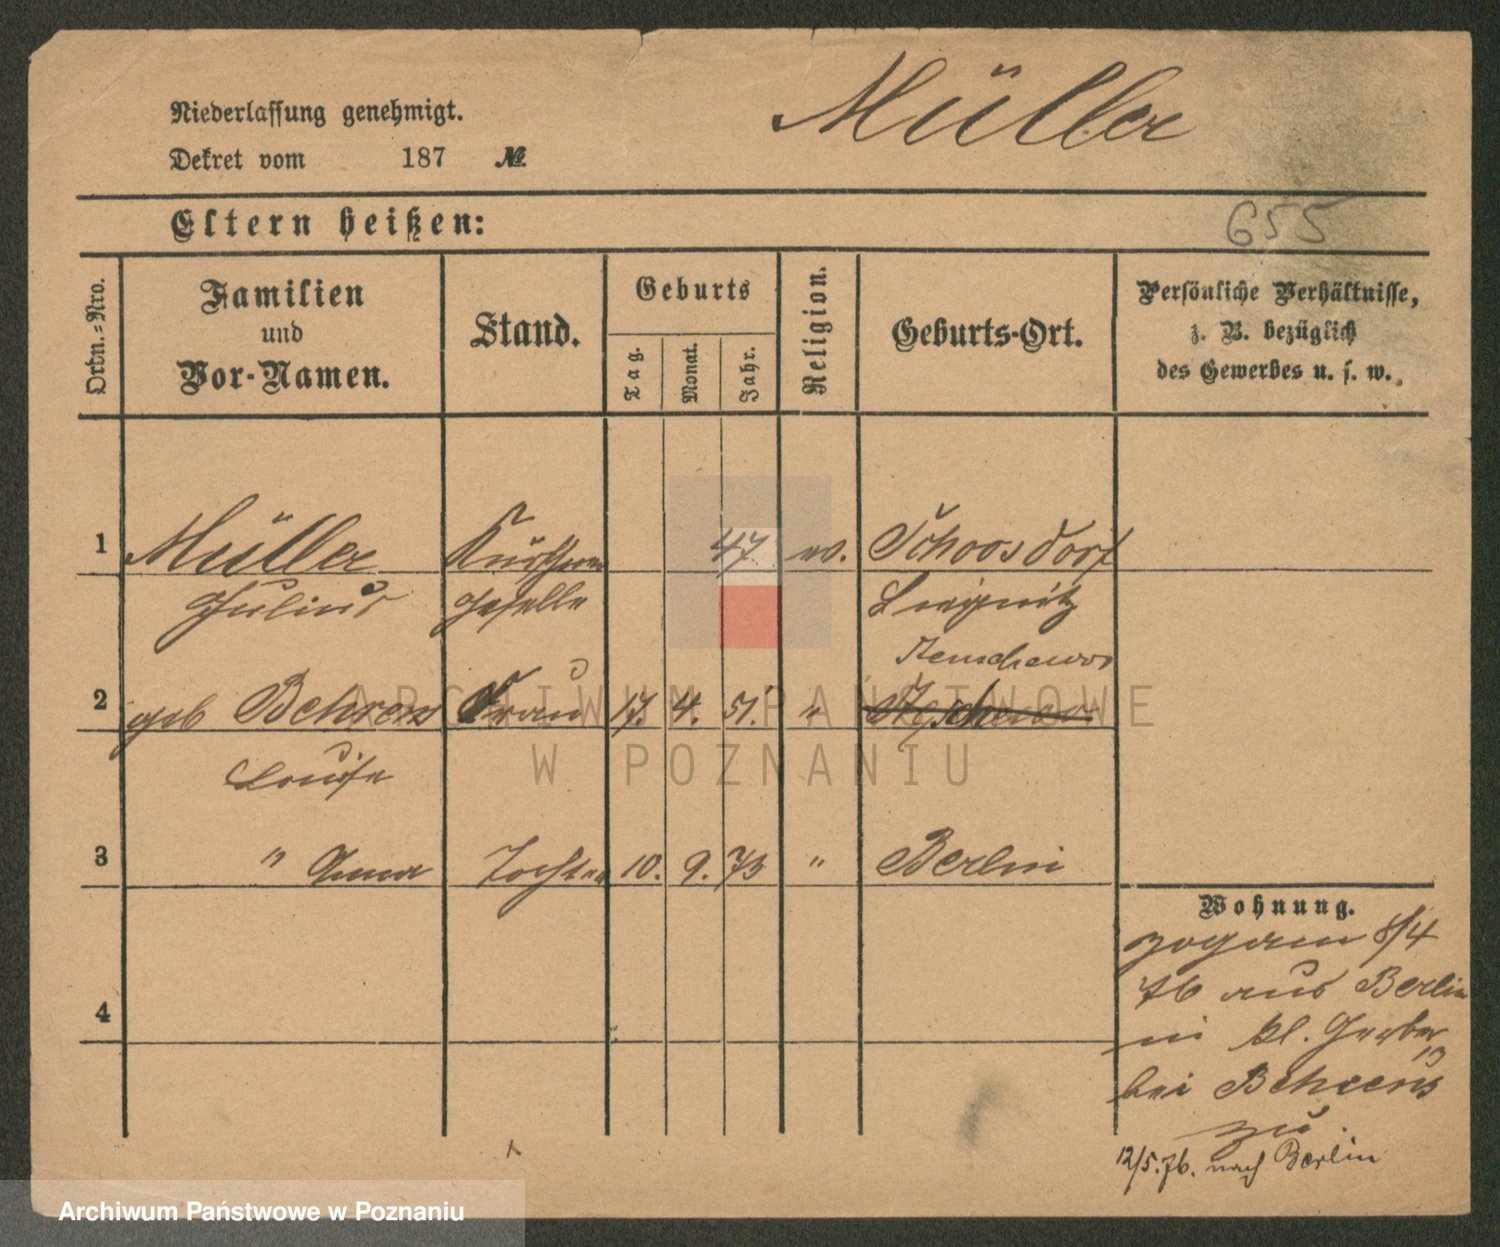 Niederlassung genehmigt.
Müller
Dekret vom 187 №
Eltern heißen:
655
Ordn.-Nro.
Familien
und
Vor-Namen.
Stand.
Geburts
Tag.
Monat.
Jahr.
Religion.
Geburts-Ort.
Persönliche Verhältnisse,
z. B. bezüglich
des Gewerbes u. s. w.
1 Müller Kürschner 47 ev. Schoosdorf
Julius geselle Liegnitz
2 geb Behrens Frau 17. 4. 51. "
Louise
3 " Anna Tochter 10. 9. 73 " Berlin
Wohnung.
zogen 8/4
76 aus Berlin
in kl. Gerber
13
bei Behrens
zu.
12/5.76. nach Berlin
4
ARCHIWUM PAŃSTWOWE
W POZNANIU
Archiwum Państwowe w Poznaniu